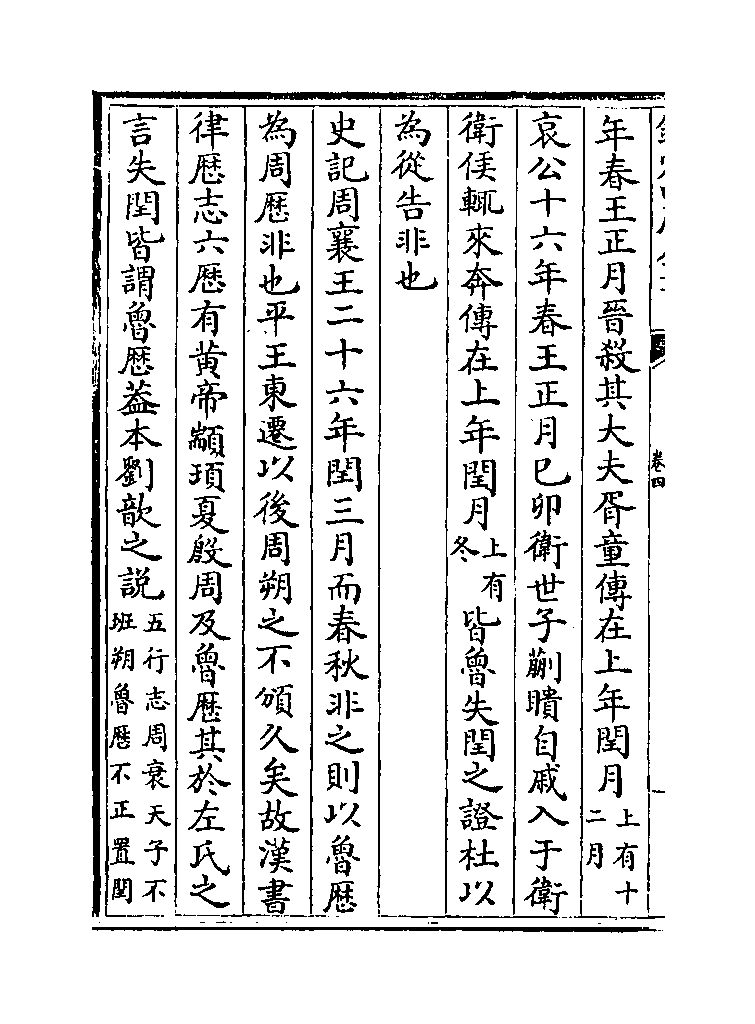 年春王正月晉殺其大夫胥童傳在上年閏月上有十二月
哀公十六年春王正月己卯衛世子蒯聵自戚入于衛
衛侯輒來奔傳在上年閏月上有冬皆魯失閏之證杜以
為從告非也
史記周襄王二十六年閏三月而春秋非之則以魯厯
為周厯非也平王東遷以後周朔之不頒久矣故漢書
律厯志六厯有黃帝顓頊夏殷周及魯厯其於左氏之
言失閏皆謂魯厯葢本劉歆之說五行志周衰天子不班朔魯厯不正置閏
卷四